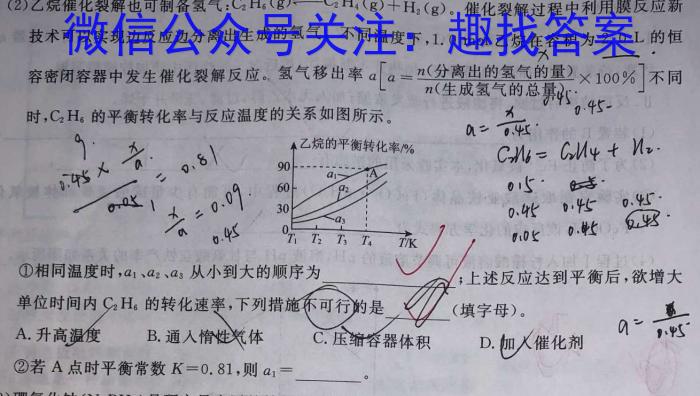 (2)乙烷催化裂解也可制备氢气:C₂H₆(g)⇌C₂H₄(g)+H₂(g)。催化裂解过程中利用膜反应新
技术可以实现边反应边分离出生成的氢气。不同温度下,1.
的恒
微信公众号关注：趣找答案
容密闭容器中发生催化裂解反应。氢气移出率 a[a=n(分离出的氢气的量)/n(生成氢气的总量)×100%]不同
时,C₂H₆ 的平衡转化率与反应温度的关系如图所示。
乙烷的平衡转化率/%
90
60
30
0
a₁
a₂
a₃
A
T₁ T₂ T₃ T₄ T/K
0.45
0.45
a = x/0.45
C₂H₆ = C₂H₄ + H₂
0.45 0.45 0.45
0.05
0.45 × x/a
= 0.81
0.05
x/a = 0.09
0.45
①相同温度时,a₁、a₂、a₃ 从小到大的顺序为________;上述反应达到平衡后,欲增大
单位时间内 C₂H₆ 的转化速率,下列措施不可行的是________(填字母)。
A. 升高温度 B. 通入惰性气体 C. 压缩容器体积 D. 加入催化剂
②若 A 点时平衡常数 K=0.81,则 a₁=________。